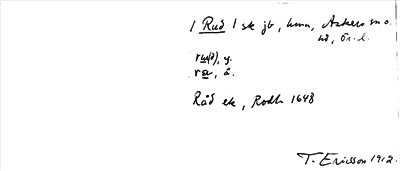 / Rud / sk jb, hmn, Askers sn o.
hd, Ör. l.
ru(d), y.
ra, ä.
Råd ek, Rodh 1648
T. Ericsson 1912.